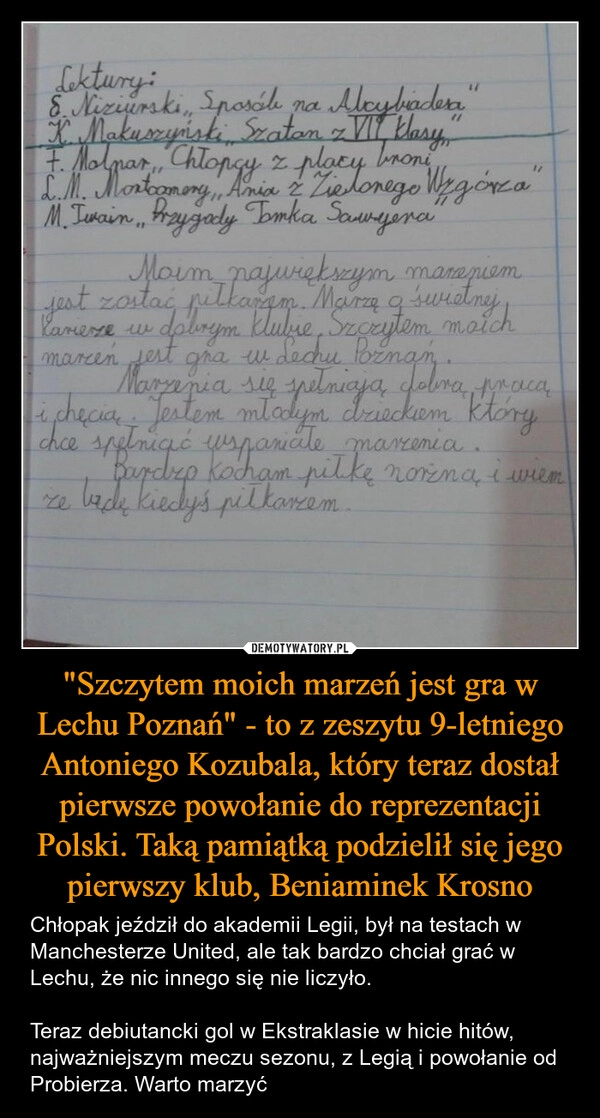 Lektury:
E. Niziurski „Sposób na Alcybiadesa"
K. Makuszyński „Szatan z VII klasy"
F. Molnar „Chłopcy z placu broni"
L.M. Montgomery „Ania z Zielonego Wzgórza"
M. Twain „Przygody Tomka Sawyera"
Moim największym marzeniem
jest zostać piłkarzem. Marzę o świetnej
karierze w dobrym klubie. Szczytem moich
marzeń jest gra w Lechu Poznań.
Marzenia się spełniają dobrą pracą
i chęcią. Jestem młodym dzieckiem który
chce spełniać wspaniałe marzenia.
Bardzo kocham piłkę nożną i wiem
że będę kiedyś piłkarzem.
DEMOTYWATORY.PL
"Szczytem moich marzeń jest gra w
Lechu Poznań" - to z zeszytu 9-letniego
Antoniego Kozubala, który teraz dostał
pierwsze powołanie do reprezentacji
Polski. Taką pamiątką podzielił się jego
pierwszy klub, Beniaminek Krosno
Chłopak jeździł do akademii Legii, był na testach w
Manchesterze United, ale tak bardzo chciał grać w
Lechu, że nic innego się nie liczyło.
Teraz debiutancki gol w Ekstraklasie w hicie hitów,
najważniejszym meczu sezonu, z Legią i powołanie od
Probierza. Warto marzyć